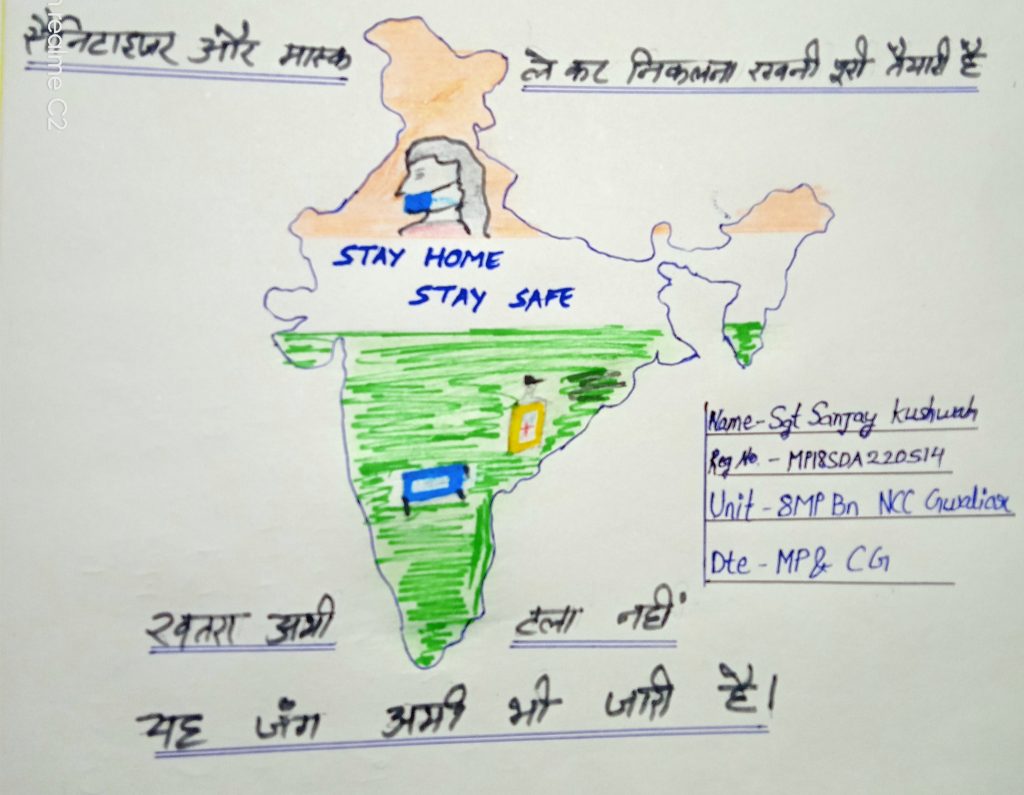 सैनिटाइजर और मास्क ले कर निकलना रखनी पूरी तैयारी है
STAY HOME
STAY SAFE
Name - Sgt Sanjay Kushwah
Reg No. - MP18SDA220514
Unit - 8MP Bn NCC Gwalior
Dte - MP & CG
खतरा अभी टला नहीं
यह जंग अभी भी जारी है।
realme C2